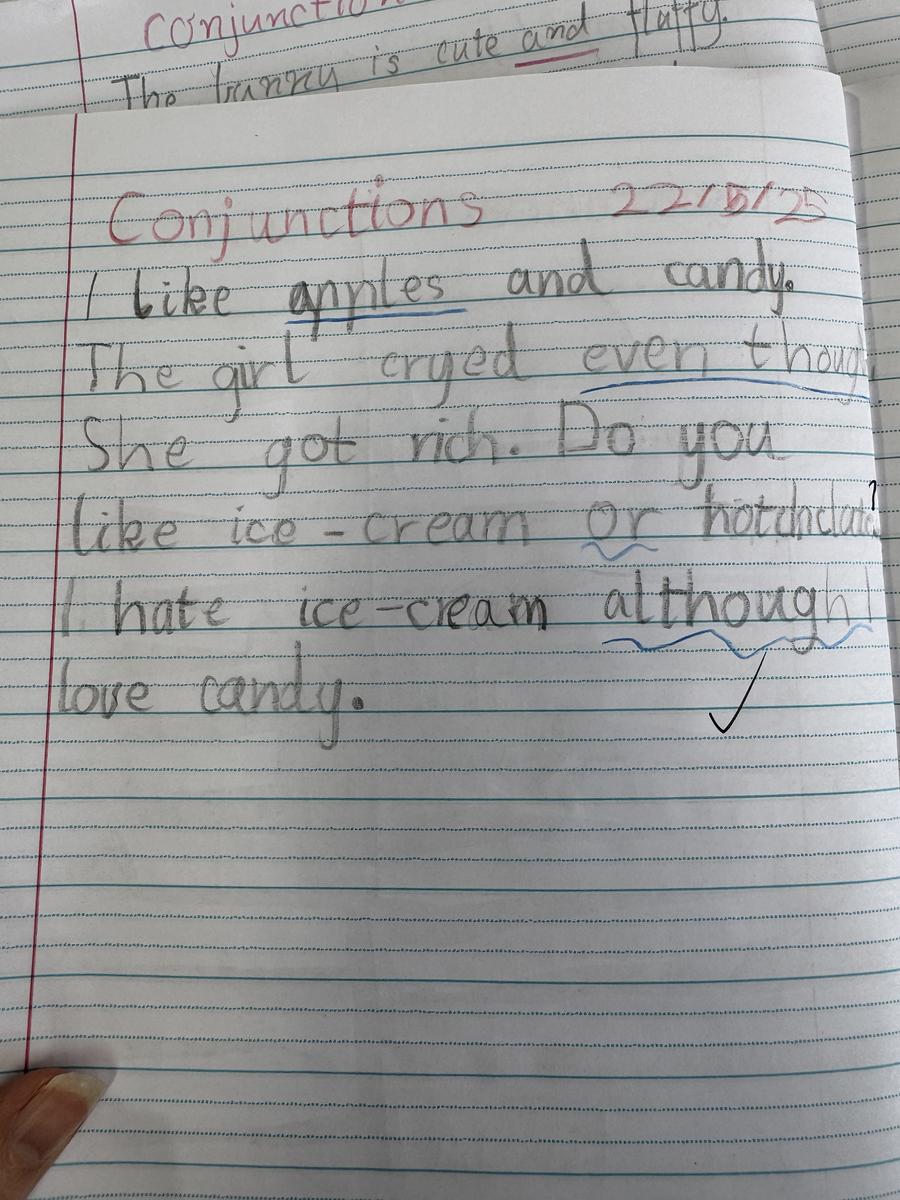 Conjunctio
The bunny is cute and fluffy.
Conjunctions 22/5/25
I like apples and candy.
The girl cryed even thoug
She got rich. Do you
like ice-cream or
I hate ice-cream although I
love candy.